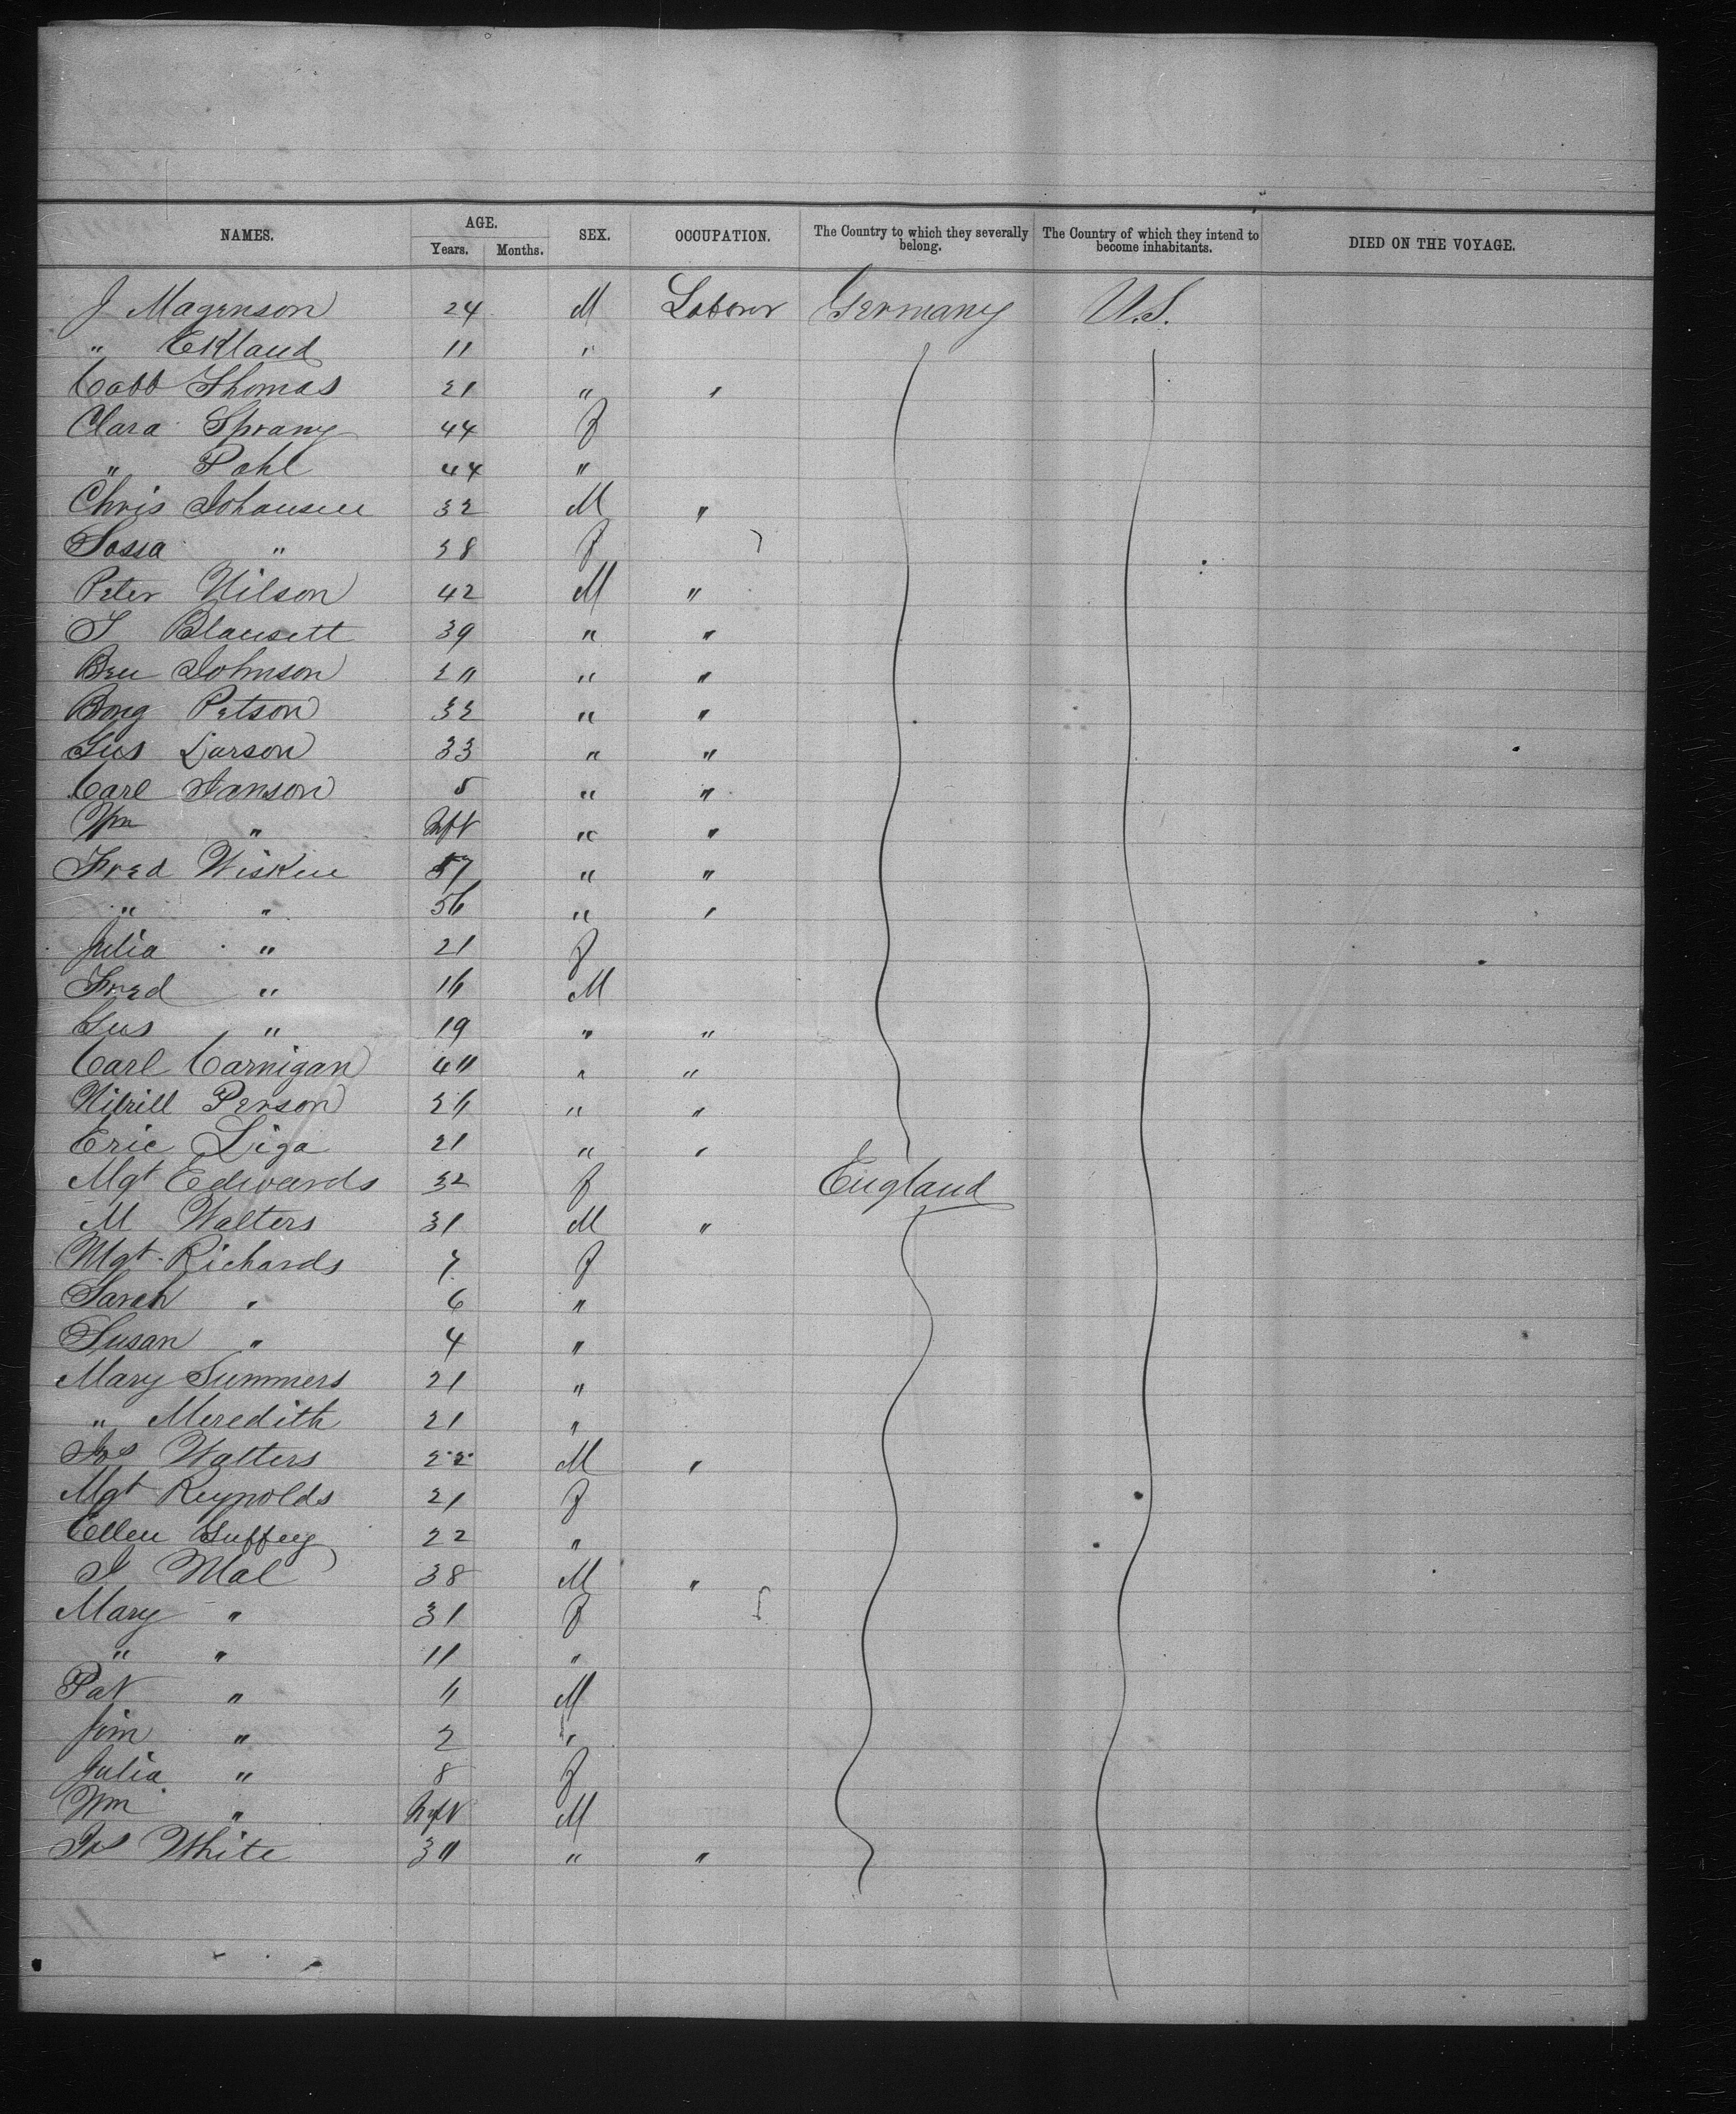 NAMES. AGE. SEX. OCCUPATION. The Country to which they severally belong. The Country of which they intend to become inhabitants. DIED ON THE VOYAGE.
Years. Months.
J Magenson 24 M Laborer Germany U.S.
" Ekland 11 "
Cabb Thomas 21 " "
Clara Sprany 44 F
" Pohl 44 "
Chris Johansen 32 M "
Sassa " 38 F
Peter Nilson 42 M "
S Blausett 39 " "
Ben Johnson 20 " "
Bong Petson 32 " "
Gus Larson 33 " "
Carl Janson 5 " "
Wm " Inft " "
Fred Wisken 57 " "
" " 56 " "
Julia " 21 F
Fred " 16 M
Gus " 19 " "
Carl Carnigan 40 " "
Person 26 " "
Eric Liga 21 " "
Mgt Edwards 32 F England
M Walters 31 M "
Mgt Richards 7 F
Sarah " 6 "
Susan " 4 "
Mary Summers 21 "
" Meredith 21 "
Jos Walters 22 M "
Mgt Reynolds 21 F
Ellen Guffey 22 "
J Mal 38 M "
Mary " 31 F
" " 11 "
Pat " 6 M
Jim " 2 "
Julia " 8 F
Wm " Inft M
Jos White 30 " "